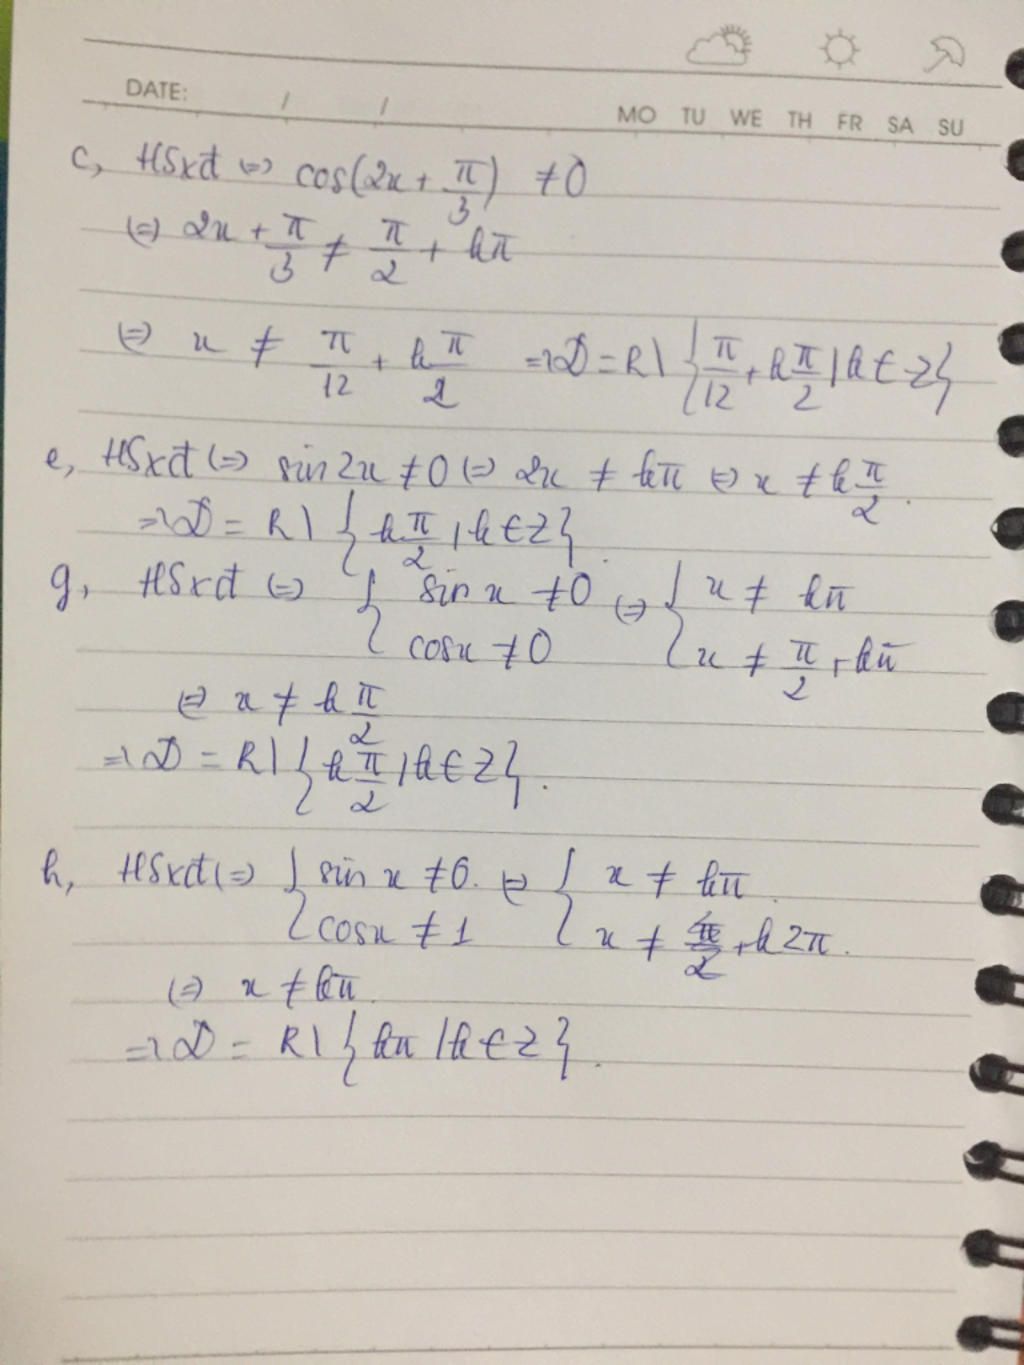 DATE: / /
MO TU WE TH FR SA SU
c, HSxđ (=) cos(2x + π/3) ≠ 0
(=) 2x + π/3 ≠ π/2 + kπ
(=) x ≠ π/12 + k π/2 => D = R \ { π/12 + k π/2 | k ∈ Z }
e, HSxđ (=) sin 2x ≠ 0 (=) 2x ≠ kπ (=) x ≠ k π/2.
=> D = R \ { k π/2 | k ∈ Z }.
g, HSxđ (=) { sin x ≠ 0 (=) { x ≠ kπ
cosx ≠ 0 x ≠ π/2 + kπ
(=) x ≠ k π/2
=> D = R \ { k π/2 | k ∈ Z }.
h, HSxđ (=) { sin x ≠ 0. (=) { x ≠ kπ
cosx ≠ 1 x ≠ + k2π.
(=) x ≠ kπ.
=> D = R \ { kπ | k ∈ Z }.